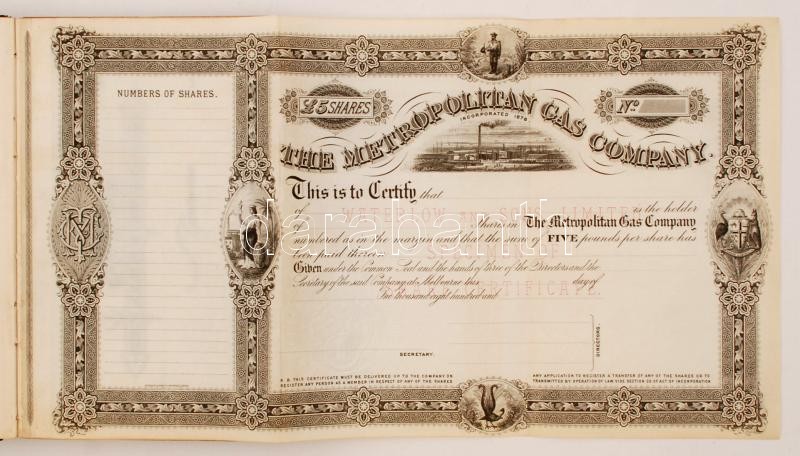 NUMBERS OF SHARES.
£5 SHARES
No
THE METROPOLITAN GAS COMPANY.
INCORPORATED 1878
This is to Certify that
of WATERLOW AND SONS LIMITED is the holder
Shares in The Metropolitan Gas Company
numbered as in the margin and that the sum of FIVE pounds per share has
been paid thereon
SPECIMEN OF
Given under the Common Seal and the hands of three of the Directors and the
Secretary of the said Company at Melbourne this day of
SHARE CERTIFICATE.
One thousand eight hundred and
DIRECTORS.
SECRETARY.
N.B. THIS CERTIFICATE MUST BE DELIVERED UP TO THE COMPANY ON
REGISTER ANY PERSON AS A MEMBER IN RESPECT OF ANY OF THE SHARES
ANY APPLICATION TO REGISTER A TRANSFER OF ANY OF THE SHARES OR TO
TRANSMITTED BY OPERATION OF LAW. VIDE SECTION 20 OF ACT OF INCORPORATION
darabanth